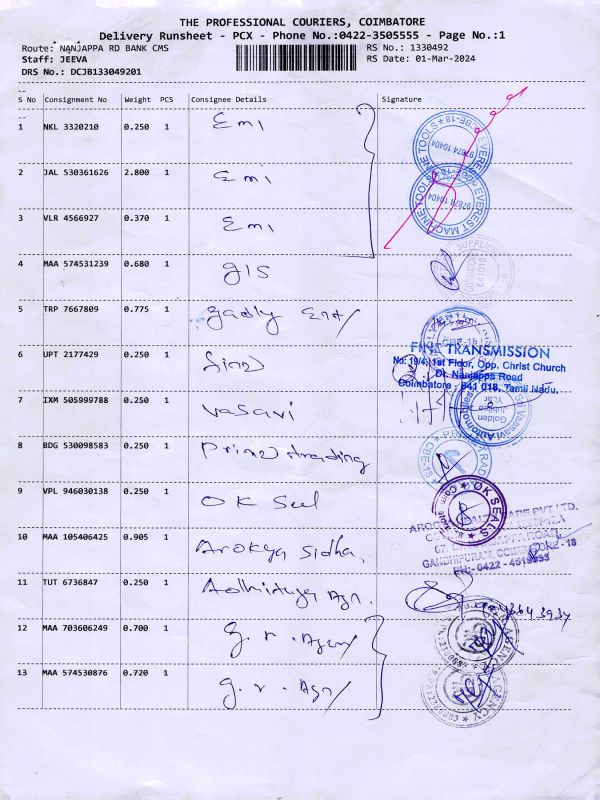 THE PROFESSIONAL COURIERS, COIMBATORE
Delivery Runsheet - PCX - Phone No.:0422-3505555 - Page No.:1
Route: NANJAPPA RD BANK CMS RS No.: 1330492
Staff: JEEVA RS Date: 01-Mar-2024
DRS No.: DCJB133049201
S No Consignment No Weight PCS Consignee Details Signature
1 NKL 3320210 0.250 1 Emi
2 JAL 530361626 2.800 1 Emi
3 VLR 4566927 0.370 1 Emi
4 MAA 574531239 0.680 1 GIS
5 TRP 7667809 0.775 1
6 UPT 2177429 0.250 1
7 IXM 505999788 0.250 1 Vasavi
8 BDG 530098583 0.250 1 trading
9 VPL 946030138 0.250 1 OK Seel
10 MAA 105406425 0.905 1 Arokya Sidha
11 TUT 6736847 0.250 1
12 MAA 703606249 0.700 1
13 MAA 574530876 0.720 1
EVEREST MACHINE TOOLS CBE-18
97874 10404
EVEREST MACHINE TOOLS
97874 10404
FINE TRANSMISSION
No: 19/4, 1st Floor, Opp. Christ Church
Dr. Nanjappa Road
Coimbatore - 641 018, Tamil Nadu.
Vasavi Automobiles
Golden Jubilee Year
OK SEALS
GANDHIPURAM, COIMBATORE - 18
PH:- 0422 -
AGENCY
AGENCY